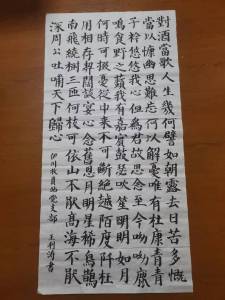 對酒當歌人生幾何譬如朝露去日苦多慨
當以慷幽思難忘何以解憂唯有杜康青青
子衿悠悠我心但為君故至今呦呦鹿
鳴食野之蘋我有嘉賓鼓瑟吹笙明明如月
何時可掇憂從中來不可斷絕越陌度阡枉
用相存契闊談宴心念舊恩月明星稀烏鵲
南飛繞樹三匝何枝可依山不厭高海不厭
深周公吐哺天下歸心
伊川党支部 王利涛書